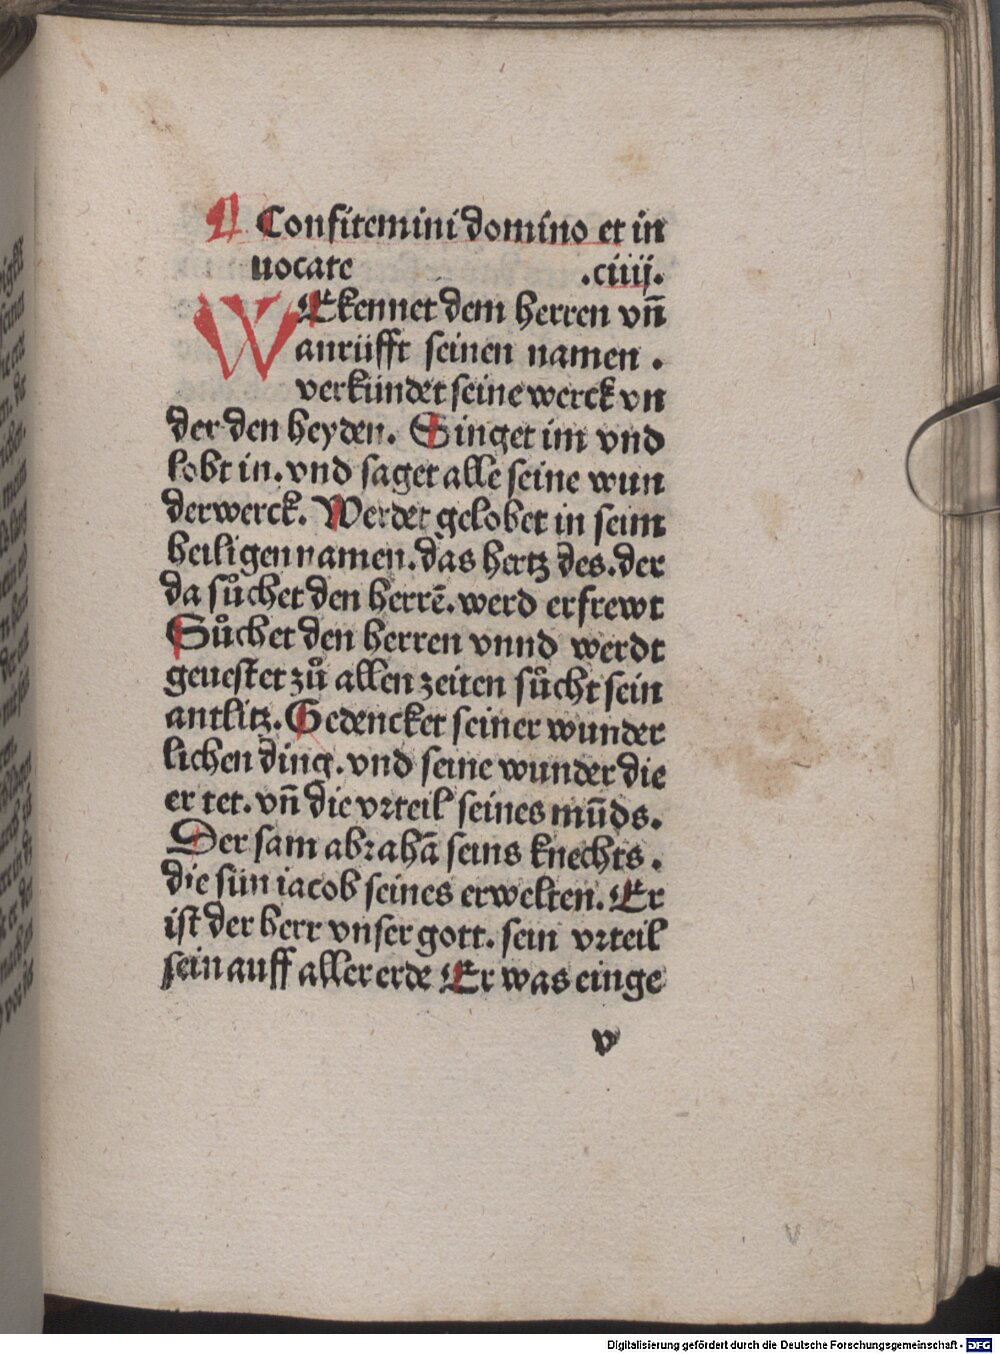 Confitemini domino et in
uocate .ciiij.
WEkennet dem herren vñ
anrüfft seinen namen .
verkündet seine werck vn
der den heyden. Singet im vnd
lobt in. vnd saget alle seine wun
derwerck. Werdet gelobet in seim
heiligen namen. das hertz des. der
da sůchet den herrē. werd erfrewt
Sůchet den herren vnnd werdt
geuestet zů allen zeiten sůcht sein
antlitz. Gedencket seiner wunder
lichen ding. vnd seine wunder die
er tet. vñ die vrteil seines mūds.
Der sam abrahā seins knechts .
die sün iacob seines erwelten. Er
ist der herr vnser gott. sein vrteil
sein auff aller erde Er was einge
v
v
Digitalisierung gefördert durch die Deutsche Forschungsgemeinschaft - DFG